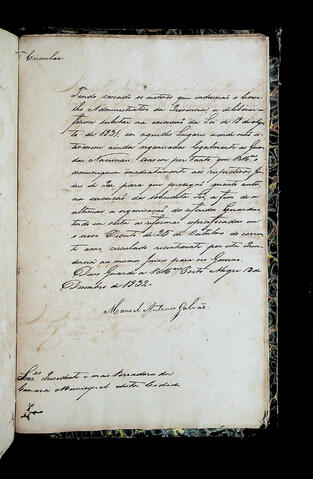 Circular
Tendo cessado os motivos que induzirão o Conse
lho Administrativo da Provincia, a deliberar
sustar na execução da Lei de 18 de Agos
to de 1831, em aquelles Lugares aonde não es
tivessem ainda organisadas legalmente as Guar
das Nacionaes: convem por tanto que VSas
communiquem immediatamente aos respectivos Jui
zes de Paz para que prosigão quanto antes,
na execução da sobredita Lei, a fim de
ultimar a organisação das referidas Guardas,
tendo em vista as reformas especificadas em
o novo Decreto de 25 de Outubro do corren
te anno, circulado recentemente por esta Presi
dencia aos mesmos Juizes para seu Governo.
Deos Guarde a VSas Porto Alegre 12 de
Dezembro de 1832.
Manoel Antonio Galvão
Snres Presidente e mais Vereadores da
Camara Municipal desta Cidade